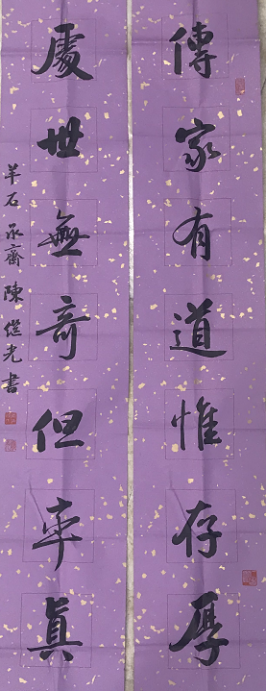 傳家有道惟存厚
處世無奇但率真
羊石承齋陳繼光書